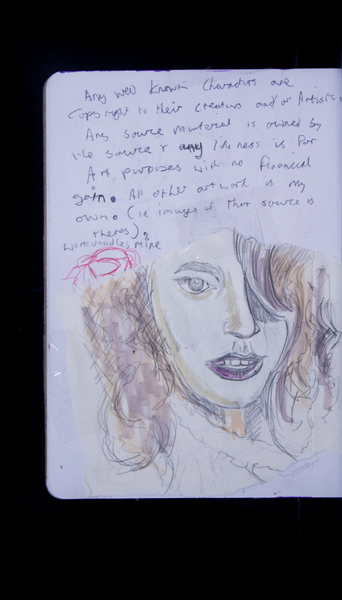 Any well known Characters are
Copyright to their creators and/or Artists.
Any source material is owned by
the source & any likeness is for
Art purposes with no financial
gain. All other artwork is my
own. (ie images if ther source is
theres).
Work doodles mine